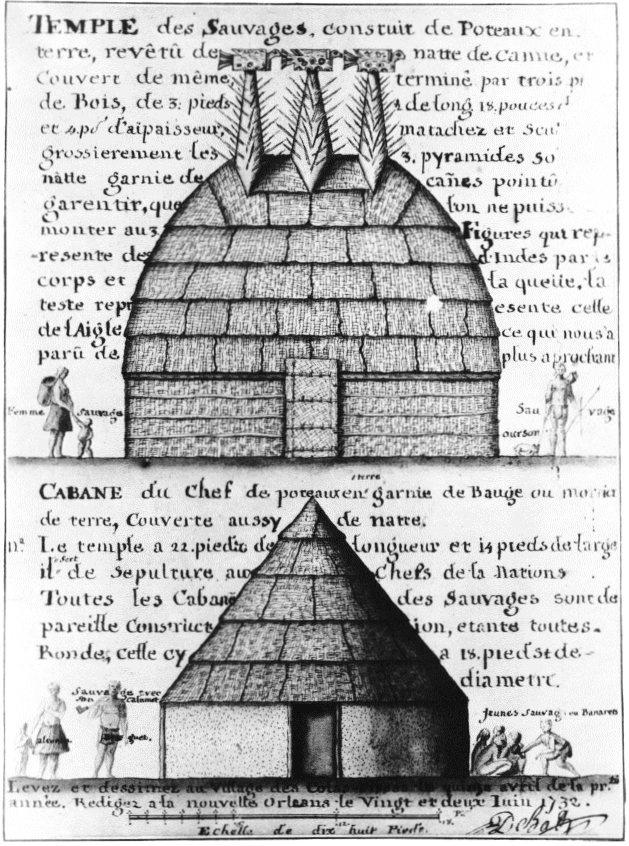 TEMPLE des Sauvages, constuit de Poteaux en
terre, revêtû de natte de canne, et
Couvert de même, terminé par trois
de Bois, de 3: pieds de long 18. pouces
et 4 po d'aipaisseur, matachez et
grossierement les 3. pyramides
nâtte garnie de cañes
garentir, que l'on ne puiss
monter au 3 Figures qui rep-
resente des d'Indes par le
corps et la queüe, la
teste rep resente celle
de l'Aigle ce qui nous a
parû de plus aprochant
Femme Sauvage
Sau vage
ourson
CABANE du Chef de poteaux en terre garnie de Bauge ou
de terre, Couverte aussy de natte.
na Le temple a 22. pieds de longueur et 14 pieds de large
il sert de Sepulture aux Chefs de la Nations
Toutes les Cabane des Sauvages sont de
pareille Construct ion, etante toutes
Ronde, celle cy a 18. pieds de
diametre.
Sauvages avec
son Calumet
Jeunes Sauvag ou Banaren
Levez et dessinez au Village des le quinze avril de la
année. Redigez a la nouvelle Orleans le Vingt et deux Iuin 1732.
Echelle de dix huit Pieds.